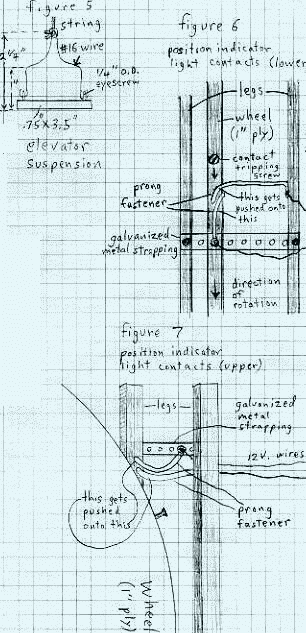 figure 5
string
#16 wire
1/4" O.D.
eyescrew
.75 x 3.5"
elevator
suspension
figure 6
position indicator
light contacts (lower
legs
wheel
(1" ply)
contact
tripping
screw
prong
fastener
this gets
pushed onto
this
galvanized
metal strapping
direction
of
rotation
figure 7
position indicator
light contacts (upper)
legs
galvanized
metal
strapping
12V. wires
this gets
pushed
onto this
prong
fastener
Wheel
(1" ply)